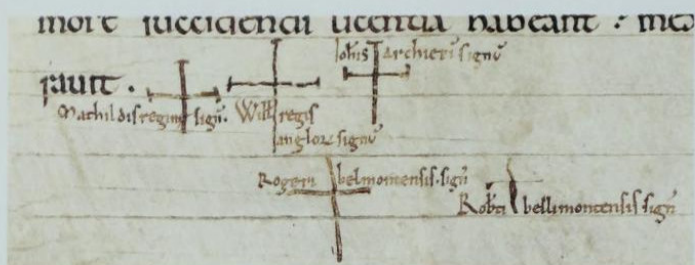 more succidendi licentia habeant : mea
rauit .
Ioħis Archieri signū
Mathildis regine signū. Willi regis
anglor signū
Rogerii belmontensis signū
Robti bellimontensis signū